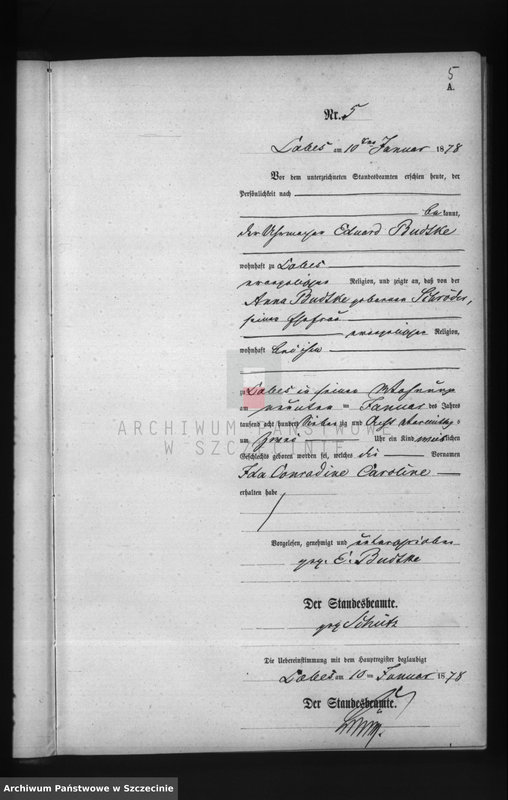 5
A.
Nr. 5
Labes am 10ten Januar 1878
Vor dem unterzeichneten Standesbeamten erschien heute, der
Persönlichkeit nach
bekannt,
der Uhrmacher Eduard Budtke
wohnhaft zu Labes
evangelischer Religion, und zeigte an, daß von der
Anna Budtke geborenen Schröder,
seiner Ehefrau
evangelischer Religion,
wohnhaft bei ihm
zu Labes in seiner Wohnung
am neunten Januar des Jahres
tausend acht hundert siebenzig und acht Vormittags
um zwei Uhr ein Kind weiblichen
Geschlechts geboren worden sei, welches die Vornamen
Ida Conradine Caroline
erhalten habe
Vorgelesen, genehmigt und unterschrieben
gez. E. Budtke
Der Standesbeamte.
gez. Schütz
Die Uebereinstimmung mit dem Hauptregister beglaubigt
Labes am 10 Januar 1878
Der Standesbeamte.
ARCHIWUM PAŃSTWOWE
W SZCZECINIE
Archiwum Państwowe w Szczecinie